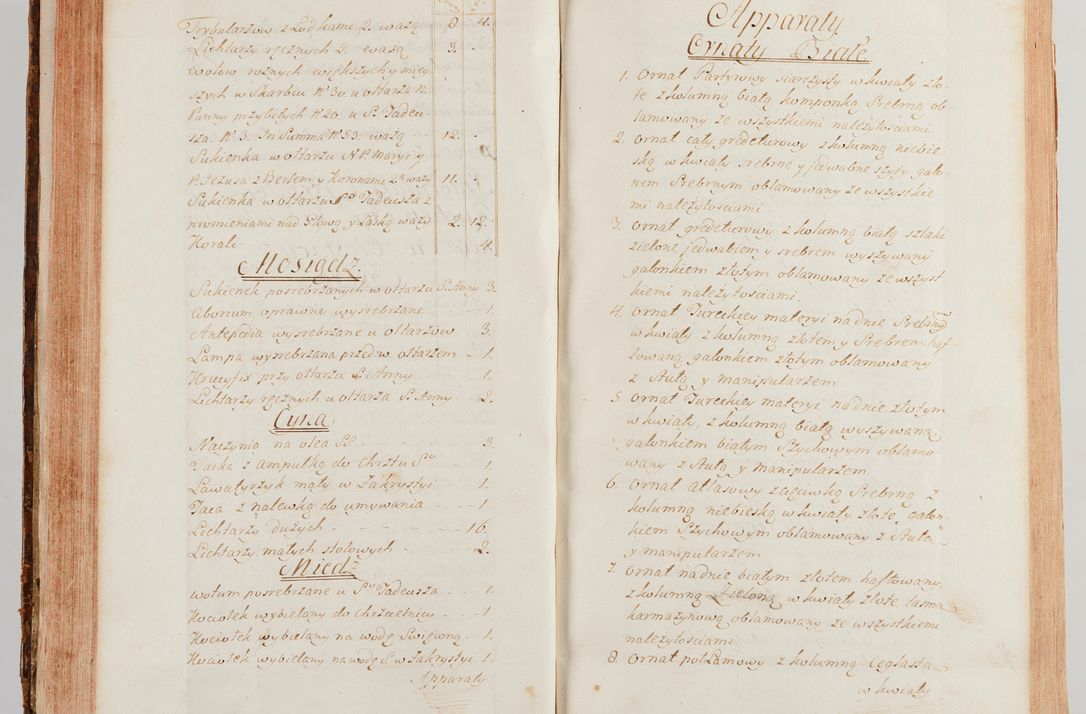 Trybularzow z Łodkami 2. ważą 8 4.
Lichtarzy ręcznych 2. ważą 3. .
Wotow rożnych większych y mniey
szych w Skarbcu No 30. u ołtarza N.
Panny przybitych No 20. u S. Tadeu
sza. No 3. In Summa No 53. ważą 12. .
Sukienka w ołtarzu N. P. Maryi y
P. Jezusa z Berłem y Koronami 2a waży 11. .
Sukienka w ołtarzu So Tadeusza z
promieniami nad Głową y Laską waży 2. 12.
Korale 4.
Mosiądz.
Sukienek posrebrzanych w ołtarzu S. Anny 3.
Ciborium oprawne wysrebrzane 1.
Antepedia wysrebrzane u ołtarzow 3.
Lampa wysrebrzana przed w. ołtarzem 1.
Krucyfix przy ołtarzu S. Anny 1.
Lichtarzy ręcznych u ołtarza S. Anny 2.
Cyna
Naczynia na olea SS. 3.
Tacka z ampułką do Chrztu So 1.
Lawatyrzyk mały w Zakrystyi 1.
Taca z nalewką do umywania 1.
Lichtarzy dużych 16.
Lichtarzy małych stołowych 2.
Miedz
wotum posrebrzane u So Tadeusza 1.
Kociołek wybielany do Chrzcielnicy 1.
Kociołek wybielany na wodę Swięconą 1.
Kociołek wybielany na wodę S. w Zakrystyi 1.
Apparaty
Apparaty
Ornaty Białe
1. Ornat Partyrowy sciezysty w kwiaty zło-
te z kolumną białą komponką Srebrną ob-
lamowany ze wszystkiemi należytościami
2. Ornat cały gredeturowy z kolumną niebie
ską w kwiaty srebrne y jedwabne szyty, galo-
nem Srebrnym oblamowany ze wszystkie
mi należytościami
3. Ornat gredeturowy z kolumną białą szlaki
zielone jedwabiem y srebrem wyszywany
galonkiem złotym oblamowany ze wszyst
kiemi należytościami.
4. Ornat Tureckiey materyi na dnie Srebrnym
w kwiaty z kolumną złotem y Srebrem haf-
towaną, galonkiem złotym oblamowany
z Stułą y manipularzem.
5. Ornat Tureckiey materyi na dnie złotym
w kwiaty, z kolumną białą wyszywaną
galonkiem białym Szychowym oblamo-
wany z Stułą y manipularzem.
6. Ornat atłasowy z lgniwką Srebrną z
kolumną niebieską w kwiaty złote, galon-
kiem Szychowym oblamowany z Stułą
y manipularzem
7. Ornat na dnie białym złotem haftowany,
z kolumną Zieloną w kwiaty złote tasmą
karmazynową oblamowany ze wszystkiemi
należytościami.
8. Ornat pół Lamowy z kolumną ceglastą
w kwiaty